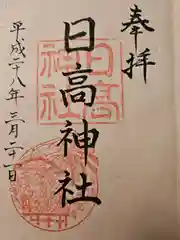 奉拝
日高神社
平成二八年三月二十一日
日高神社